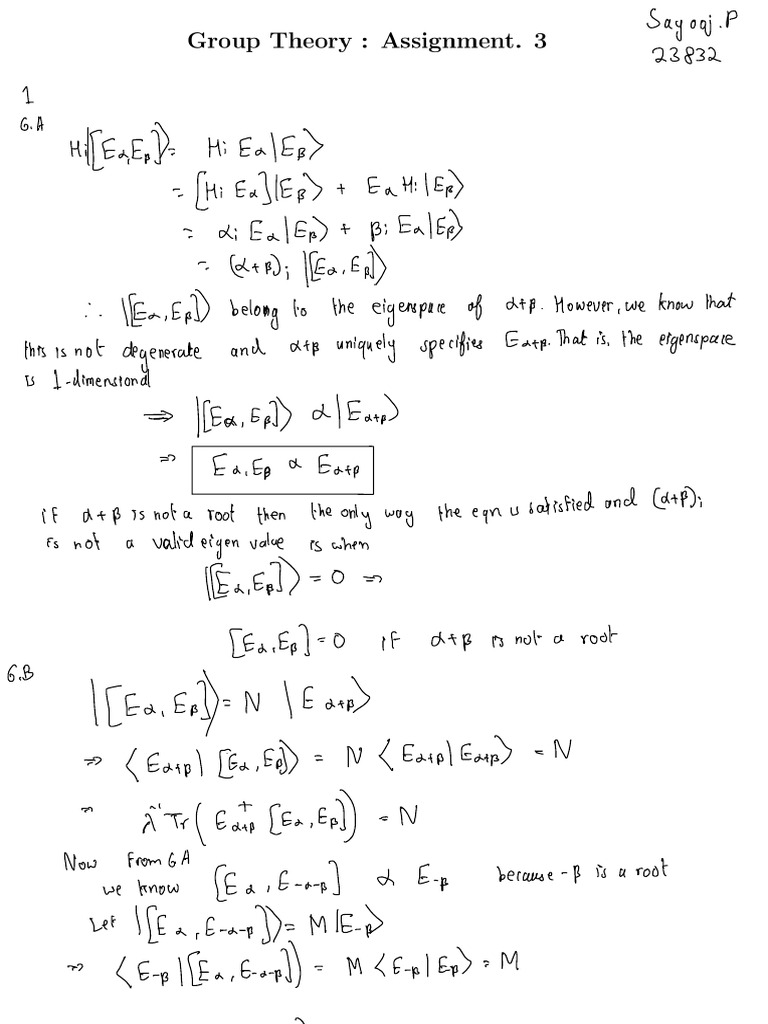 Group Theory : Assignment. 3
Sayooj.P
23832
1
6.A
Hi|[Eα,Eβ]⟩ = Hi Eα|Eβ⟩
= [Hi Eα]|Eβ⟩ + Eα Hi|Eβ⟩
= αi Eα|Eβ⟩ + βi Eα|Eβ⟩
= (α+β)i |[Eα, Eβ]⟩
∴ |[Eα, Eβ]⟩ belong to the eigenspace of α+β. However, we know that
this is not degenerate and α+β uniquely specifies Eα+β. That is, the eigenspace
is 1-dimensional
⇒ |[Eα, Eβ]⟩ α |Eα+β⟩
⇒ Eα, Eβ α Eα+β
if α+β is not a root then the only way the eqn is satisfied and (α+β)i
is not a valid eigen value is when
|[Eα, Eβ]⟩ = 0 ⇒
[Eα, Eβ] = 0 if α+β is not a root
6.B
|[Eα, Eβ]⟩ = N |Eα+β⟩
⇒ ⟨Eα+β| [Eα, Eβ]⟩ = N ⟨Eα+β|Eα+β⟩ = N
⇒ λ⁻¹ Tr(E†α+β [Eα, Eβ]) = N
Now from 6A
we know [Eα, E-α-β] α E-β because -β is a root
Let |[Eα, E-α-β]⟩ = M|E-β⟩
⇒ ⟨E-β|[Eα, E-α-β]⟩ = M ⟨E-β|Eβ⟩ = M